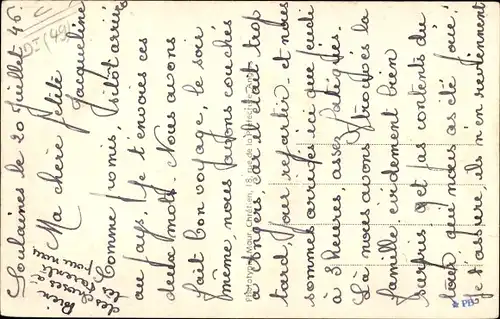 Soulaines le 20 Juillet 46.
Ma chère petite
Jacqueline
Comme promis, sitôt arrivés
au pays, je t'envoies ces
deux mots. Nous avons
fait bon voyage, le soir
même, nous avons couchés
à Angers car il était trop
tard, pour repartir. et nous
sommes arrivés ici que jeudi
à 3 heures, assez fatigués.
Là nous avons trouvés la
famille évidement bien
surpris, et pas contents du
tour qui nous as été joué.
Je t'assure, ils n'en reviennent
Bien
des choses à
tes parents
pour nous
Phototypie Mour, Chrétien, 18, rue de la
PB
DI (49)